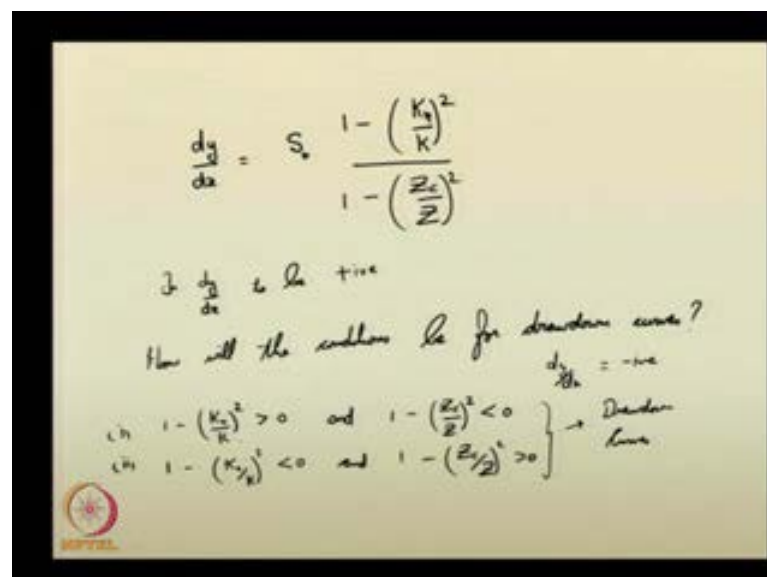 dy/dx = S₀ (1 - (K₀/K)²) / (1 - (Z_c/Z)²)
dy/dx to be +ive
How will the conditions be for drawdown curves?
dy/dx = -ive
(i) 1 - (K₀/K)² > 0 and 1 - (Z_c/Z)² < 0 } → Drawdown
(ii) 1 - (K₀/K)² < 0 and 1 - (Z_c/Z)² > 0 Curves
NPTEL